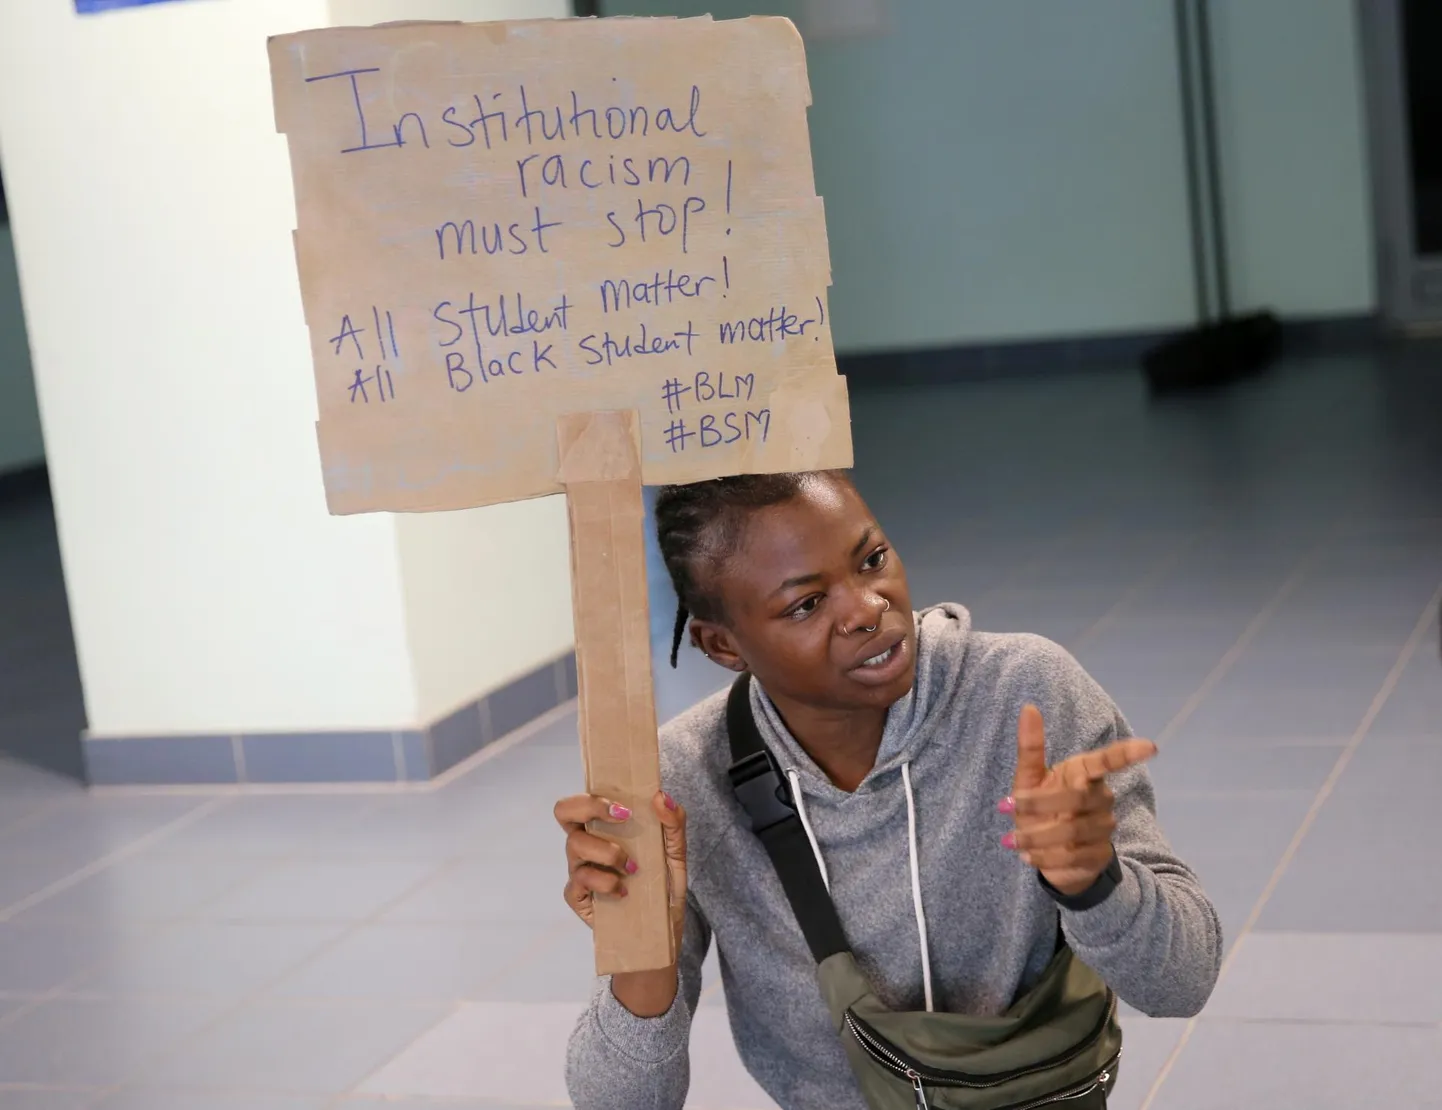 Institutional
racism
must stop!
All Student matter!
All Black student matter!
#BLM
#BSM